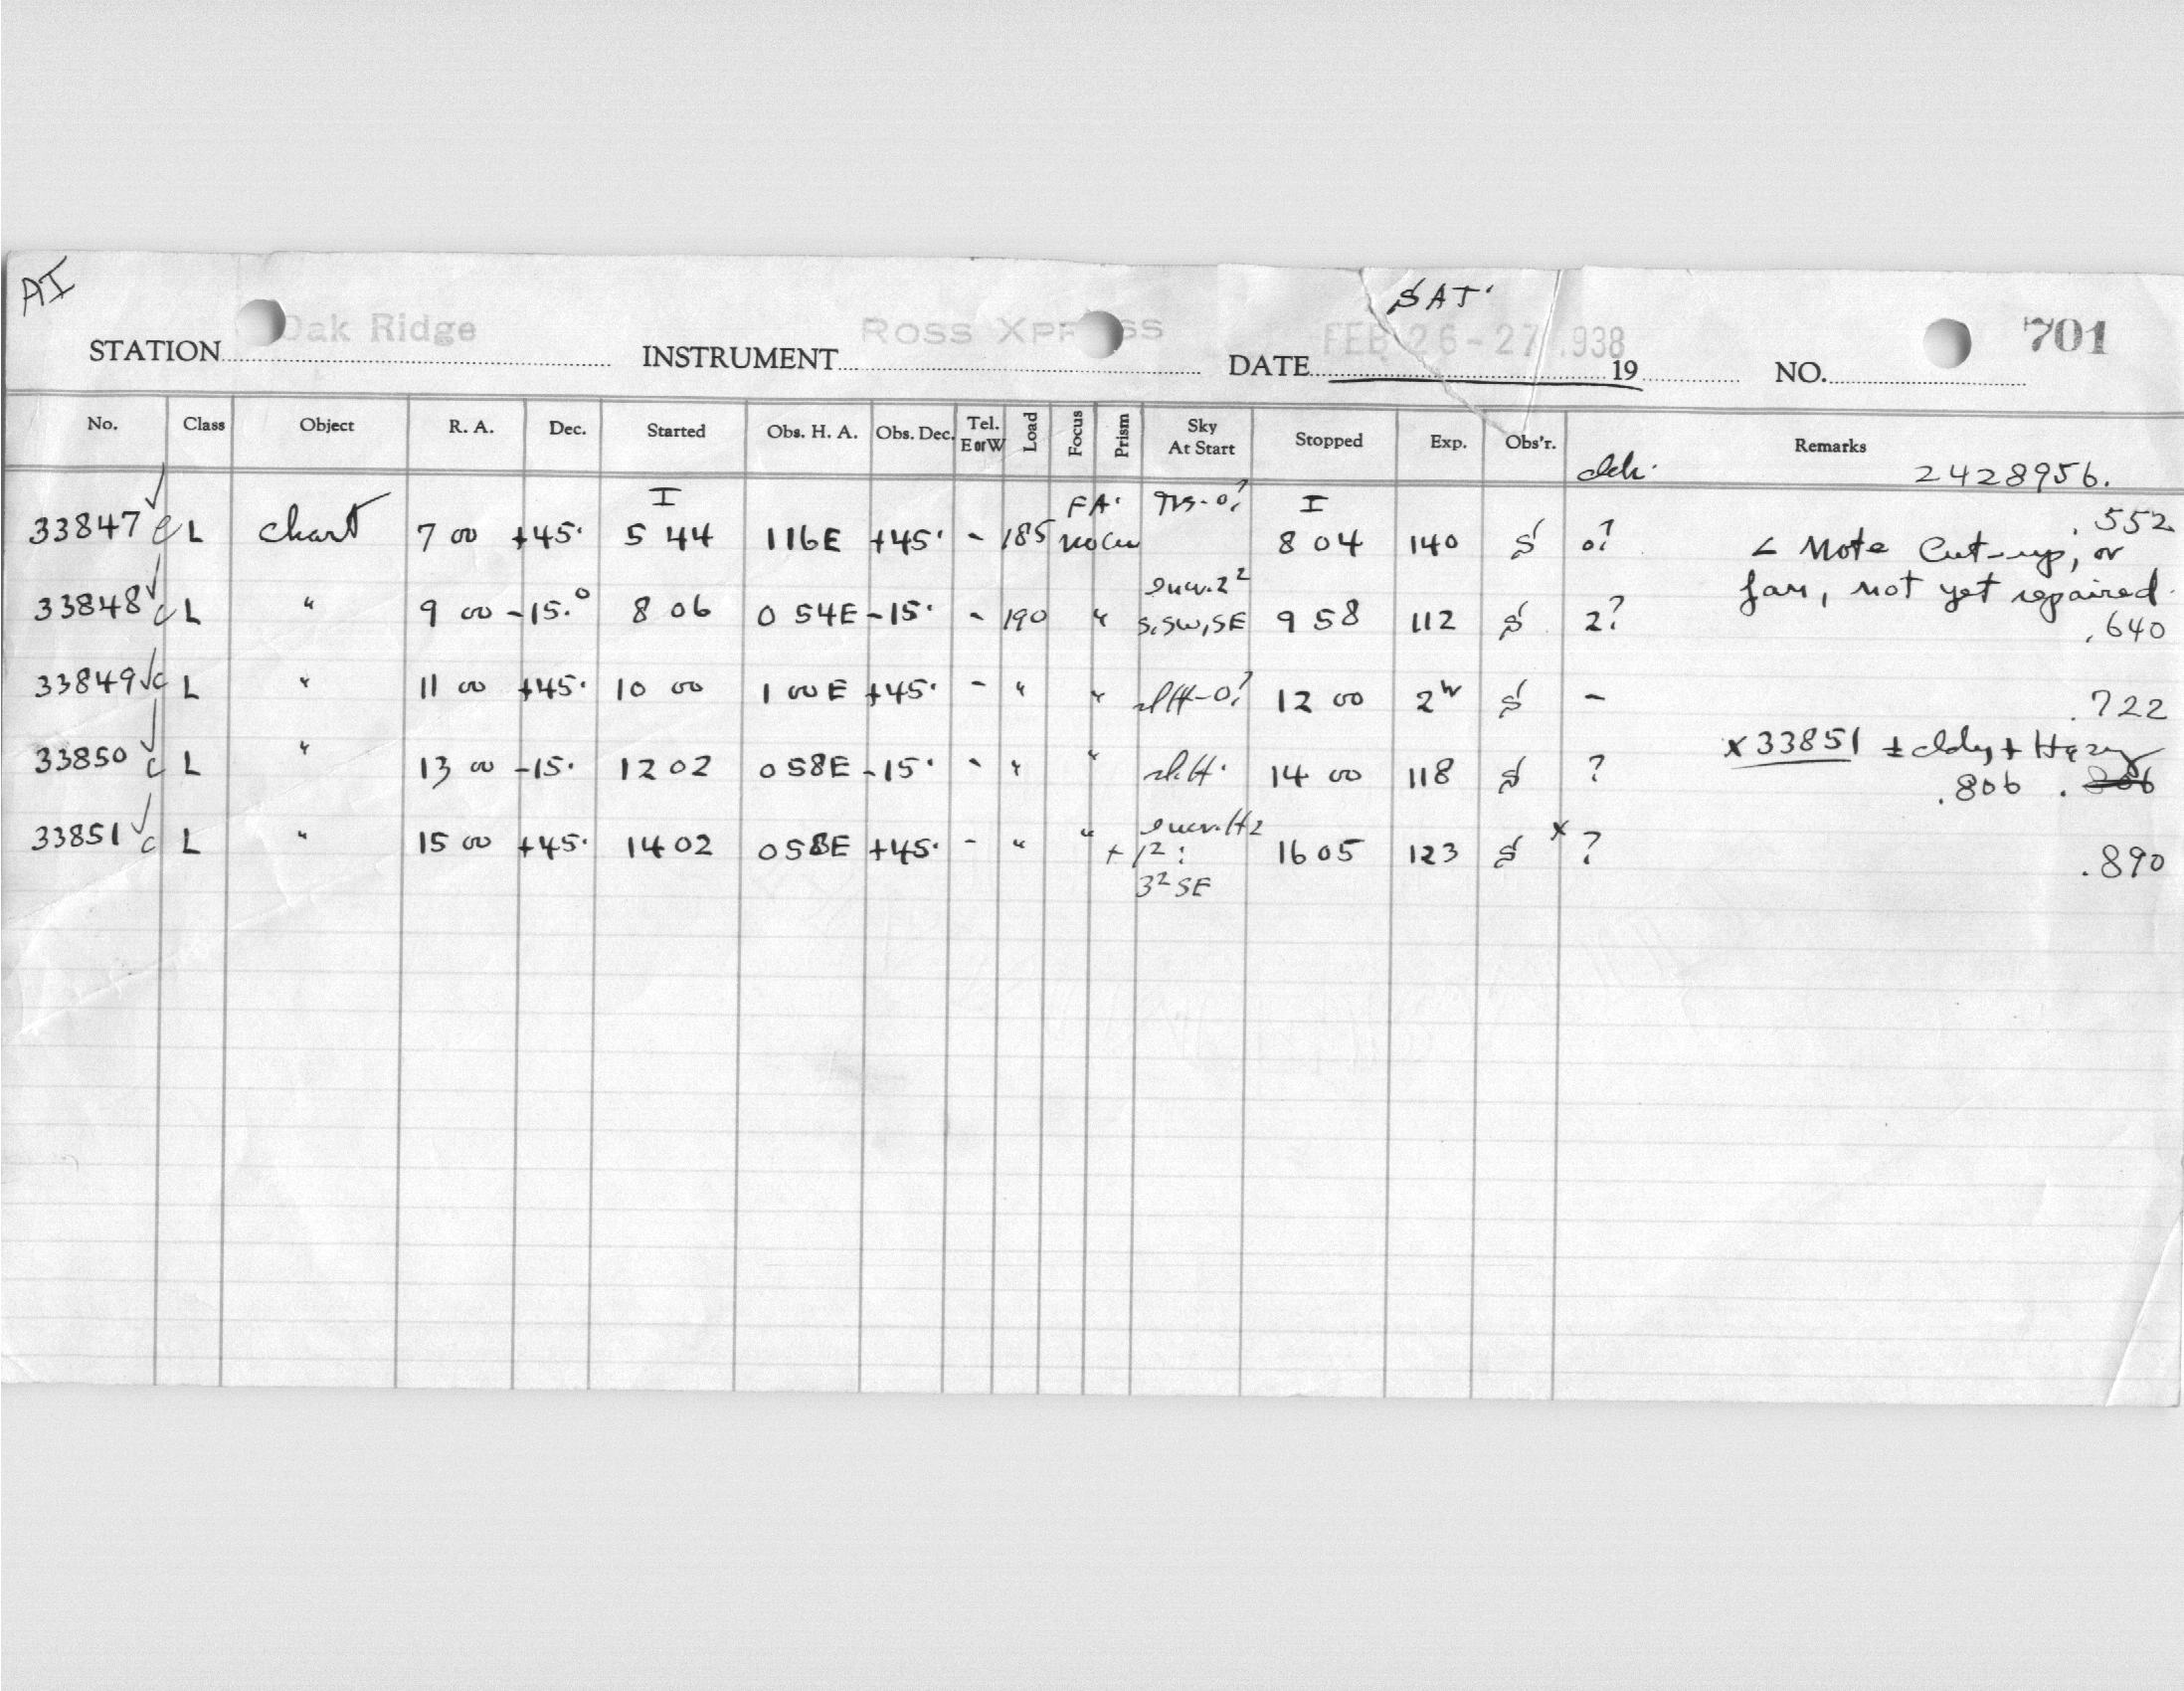 AI SAT.
STATION Oak Ridge INSTRUMENT ROSS XPRESS DATE FEB 26-27 1938 19 NO. 701
No. Class Object R. A. Dec. Started Obs. H. A. Obs. Dec. Tel. E or W Load Focus Prism Sky At Start Stopped Exp. Obs'r. Remarks
2428956.
I FA. I .552
33847 c L chart 7 00 +45. 5 44 1 16E +45. - 185 8 04 140 S 0? < Note Cut-up, or
jam, not yet repaired.
33848 c L " 9 00 -15.° 8 06 0 54E -15. - 190 " S,SW,SE 9 58 112 S 2? .640
33849 c L " 11 00 +45. 10 00 1 00E +45. - " " slH-0? 12 00 2 S - .722
x 33851 ± cldy + Hazy
33850 c L " 13 00 -15. 12 02 0 58E -15. - " " sl.H. 14 00 118 S ? .806
33851 c L " 15 00 +45. 14 02 0 58E +45. - " " + 1²: 16 05 123 S x ? .890
3² SE